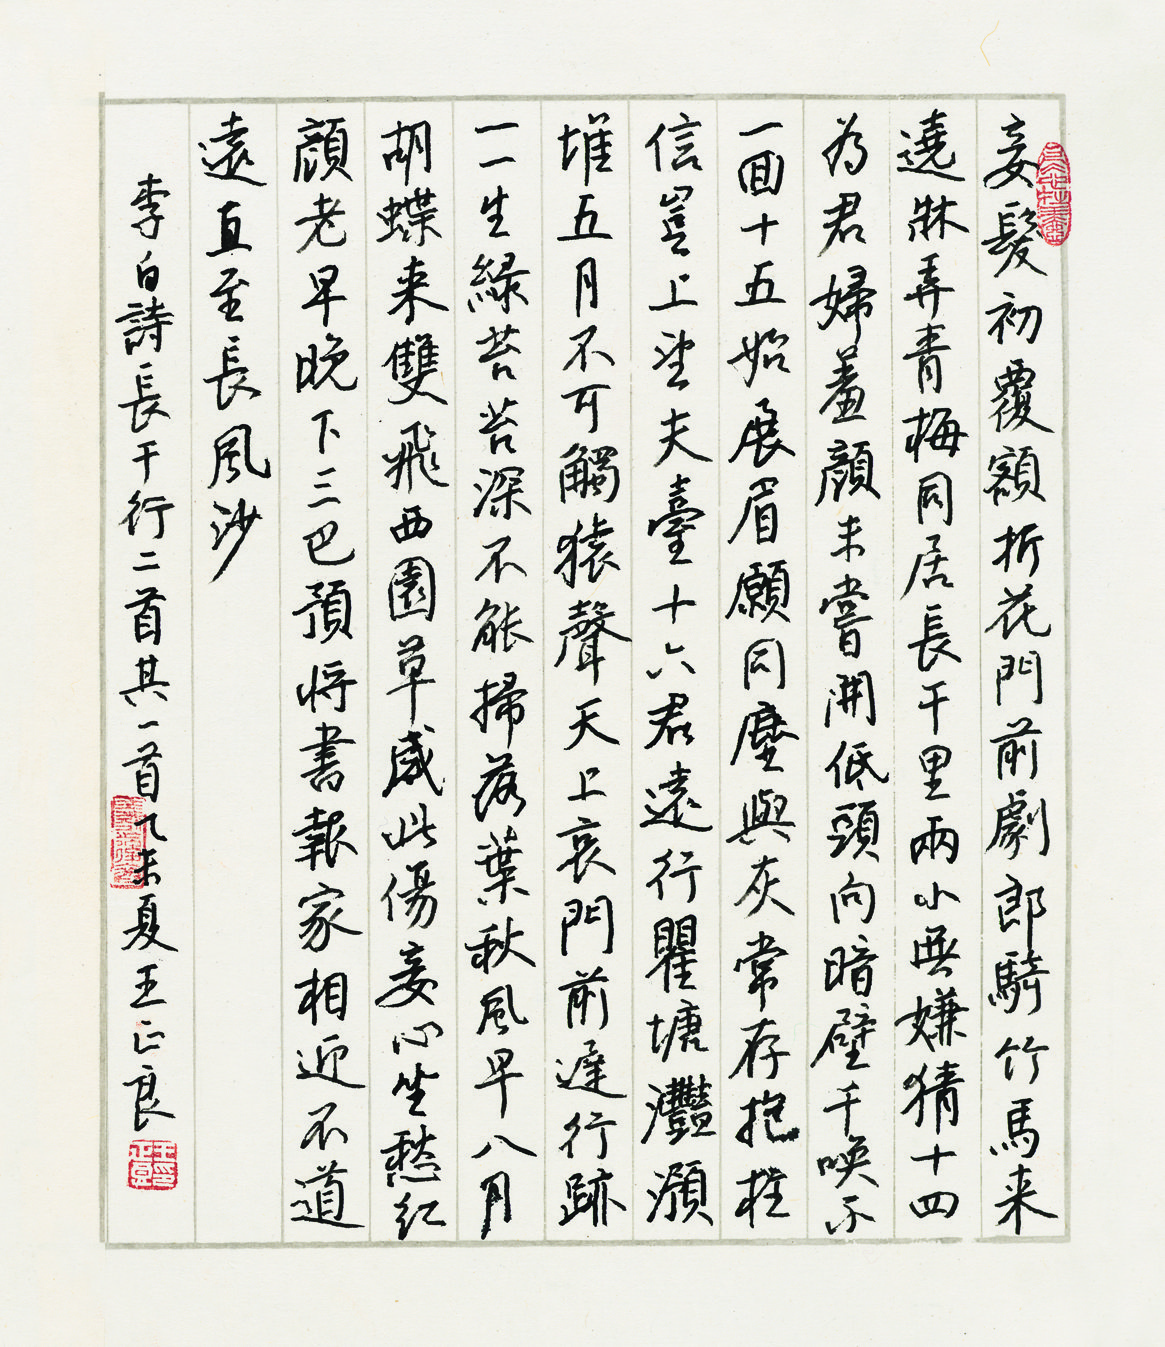 妾髮初覆額折花門前劇郎騎竹馬来
遶牀弄青梅同居長干里兩小無嫌猜十四
為君婦羞顏未嘗開低頭向暗壁千喚不
一回十五始展眉願同塵與灰常存抱柱
信豈上望夫臺十六君遠行瞿塘灧澦
堆五月不可觸猿聲天上哀門前遲行跡
一一生綠苔苔深不能掃落葉秋風早八月
胡蝶来雙飛西園草感此傷妾心坐愁紅
顏老早晚下三巴預將書報家相迎不道
遠直至長風沙
李白詩長干行二首其一首乙未夏王正良
王正良印